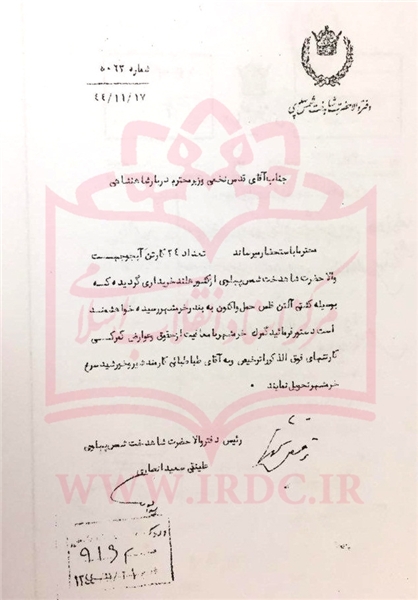 دفتر والاحضرت شاهدخت شمس پهلوی
شماره ۵۰۶۳
۴۴/۱۱/۱۷
جناب آقای قدس نخعی وزیر محترم دربار شاهنشاهی
محترما باستحضار میرساند تعداد ۲۴ کارتن آبجو بجهت
والاحضرت شاهدخت شمس پهلوی از کشور هلند خریداری گردیده که
بوسیله کشتی آلتن فلس حمل واکنون به بندر خرمشهر رسیده خواهشمند
است دستور فرمائید گمرک خرمشهر با معافیت از حقوق وعوارض گمرکی
کارتنهای فوق الذکر را ترخیص وبه آقای طباطبائی کارمند شیر و خورشید سرخ
خرمشهر تحویل نمایند ۰
رئیس دفتر والاحضرت شاهدخت شمس پهلوی
علینقی سعید انصاری
مرکز اسناد انقلاب اسلامی
WWW.IRDC.IR